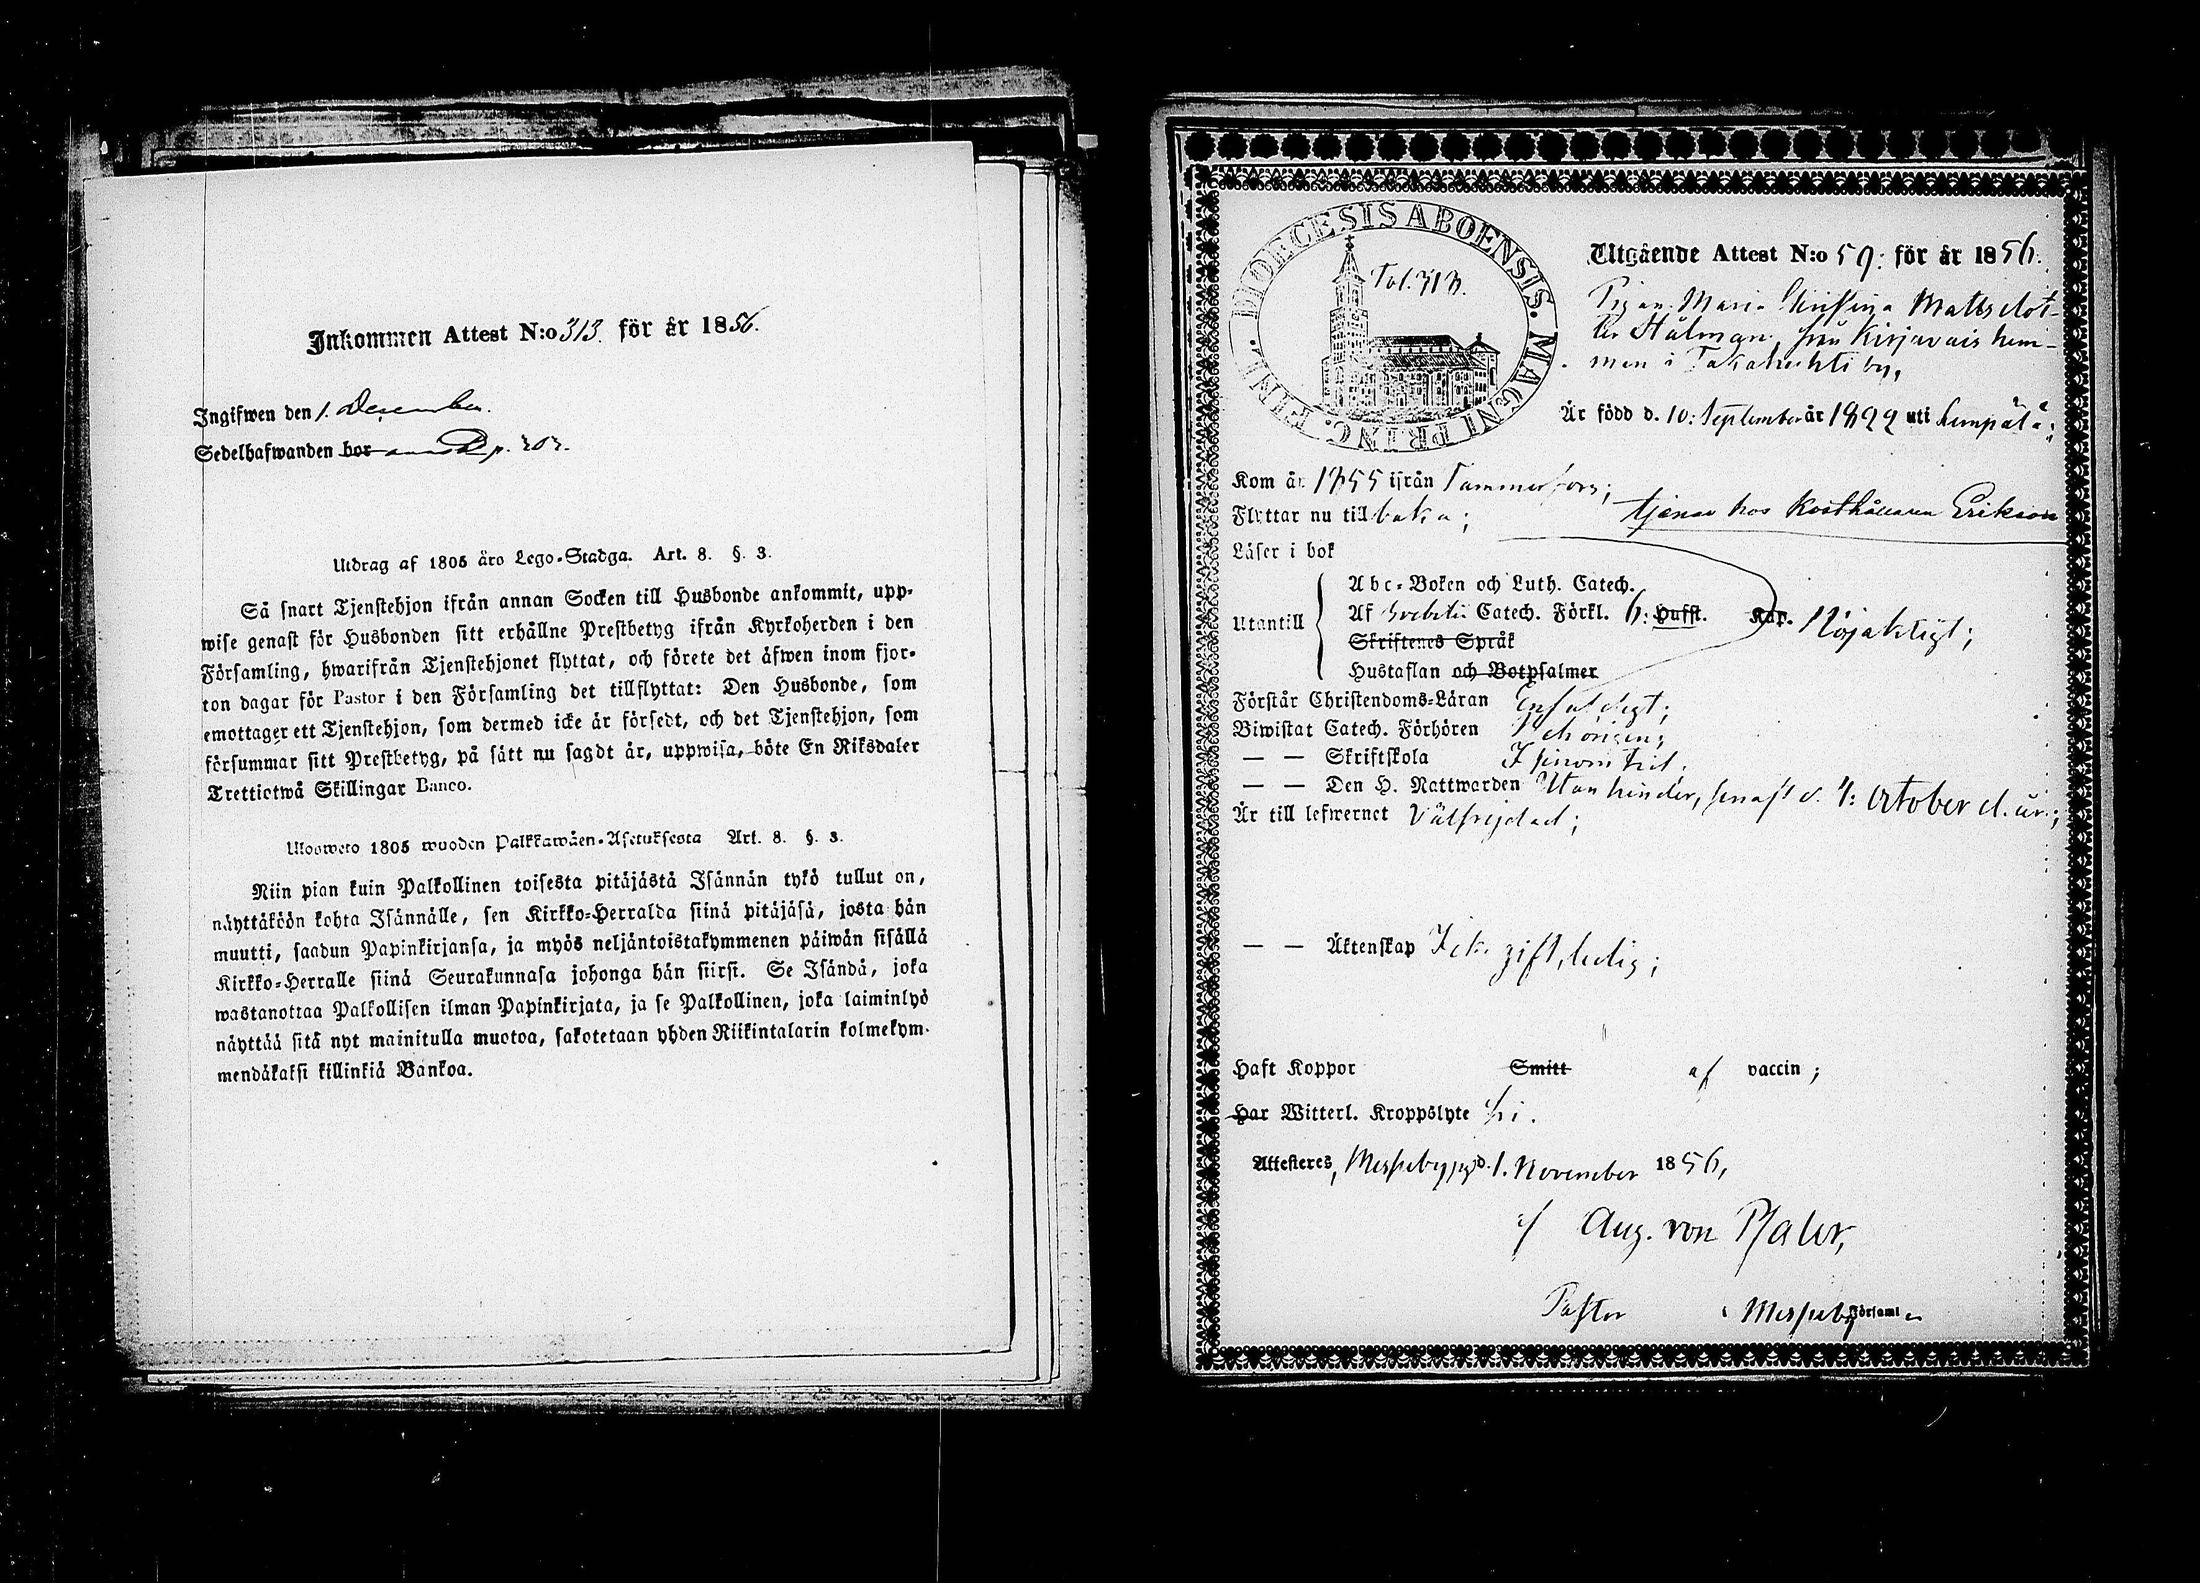 Inkommen Attest N:o 313. för år 1856.
Ingifwen den 1. December.
Sedelhafwanden bor p. 202.
Utdrag af 1805 års Lego-Stadga. Art. 8. §. 3.
Så snart Tjenstehjon ifrån annan Socken till Husbonde ankommit, upp-
wise genast för Husbonden sitt erhållne Prestbetyg ifrån Kyrkoherden i den
Församling, hwarifrån Tjenstehjonet flyttat, och förete det äfwen inom fjor-
ton dagar för Pastor i den Församling det tillflyttat: Den Husbonde, som
emottager ett Tjenstehjon, som dermed icke är försedt, och det Tjenstehjon, som
försummar sitt Prestbetyg, på sätt nu sagdt är, uppwisa, böte En Riksdaler
Trettiotwå Skillingar Banco.
Ulosweto 1805 wuoden Palkkawäen-Asetuksesta Art. 8. §. 3.
Niin pian kuin Palkollinen toisesta pitäjästä Isännän tykö tullut on,
näyttäköön kohta Isännälle, sen Kirkko-Herralda siinä pitäjäsä, josta hän
muutti, saadun Papinkirjansa, ja myös neljäntoistakymmenen päiwän sisällä
Kirkko-Herralle siinä Seurakunnasa johonga hän siirsi. Se Isändä, joka
wastanottaa Palkollisen ilman Papinkirjata, ja se Palkollinen, joka laiminlyö
näyttää sitä nyt mainitulla muotoa, sakotetaan yhden Riikintalarin kolmekym-
mendäkaksi killinkiä Bankoa.
DIOECESIS ABOENSIS. MAGNI PRINC. FINL.
Fol. 313.
Utgående Attest N:o 59: för år 1856.
Pigan Maria Christina Mattsdot-
ter Stålman från Kirjavais hem-
man i Takahuhti by,
Är född d. 10: September år 1822 uti Lempälä;
Kom år 1855 ifrån Tammerfors;
Flyttar nu tilbaka;
tjenar hos Kosthållaren Erikson
Läser i bok
Abc-Boken och Luth. Catech.
Utantill
Af Svebilii Catech. Förkl. 6: Hufst. Kap. Nöjaktigt;
Skriftenes Språk
Hustaflan och Botpsalmer
Förstår Christendoms-Läran Enfaldigt;
Biwistat Catech. Förhören
— — Skriftskola I sinom tid.
— — Den H. Nattwarden Utan hinder, senast d. 4: October d. år;
Är till lefwernet Välfrejdad;
— — Äktenskap Icke gift, ledig;
Haft Koppor Smitt af vaccin;
Har Witterl. Kroppslyte fri.
Attesteres, Messuby pgd. 1. November 1856,
af Aug. von Pfaler,
Pastor i Messuby Församl